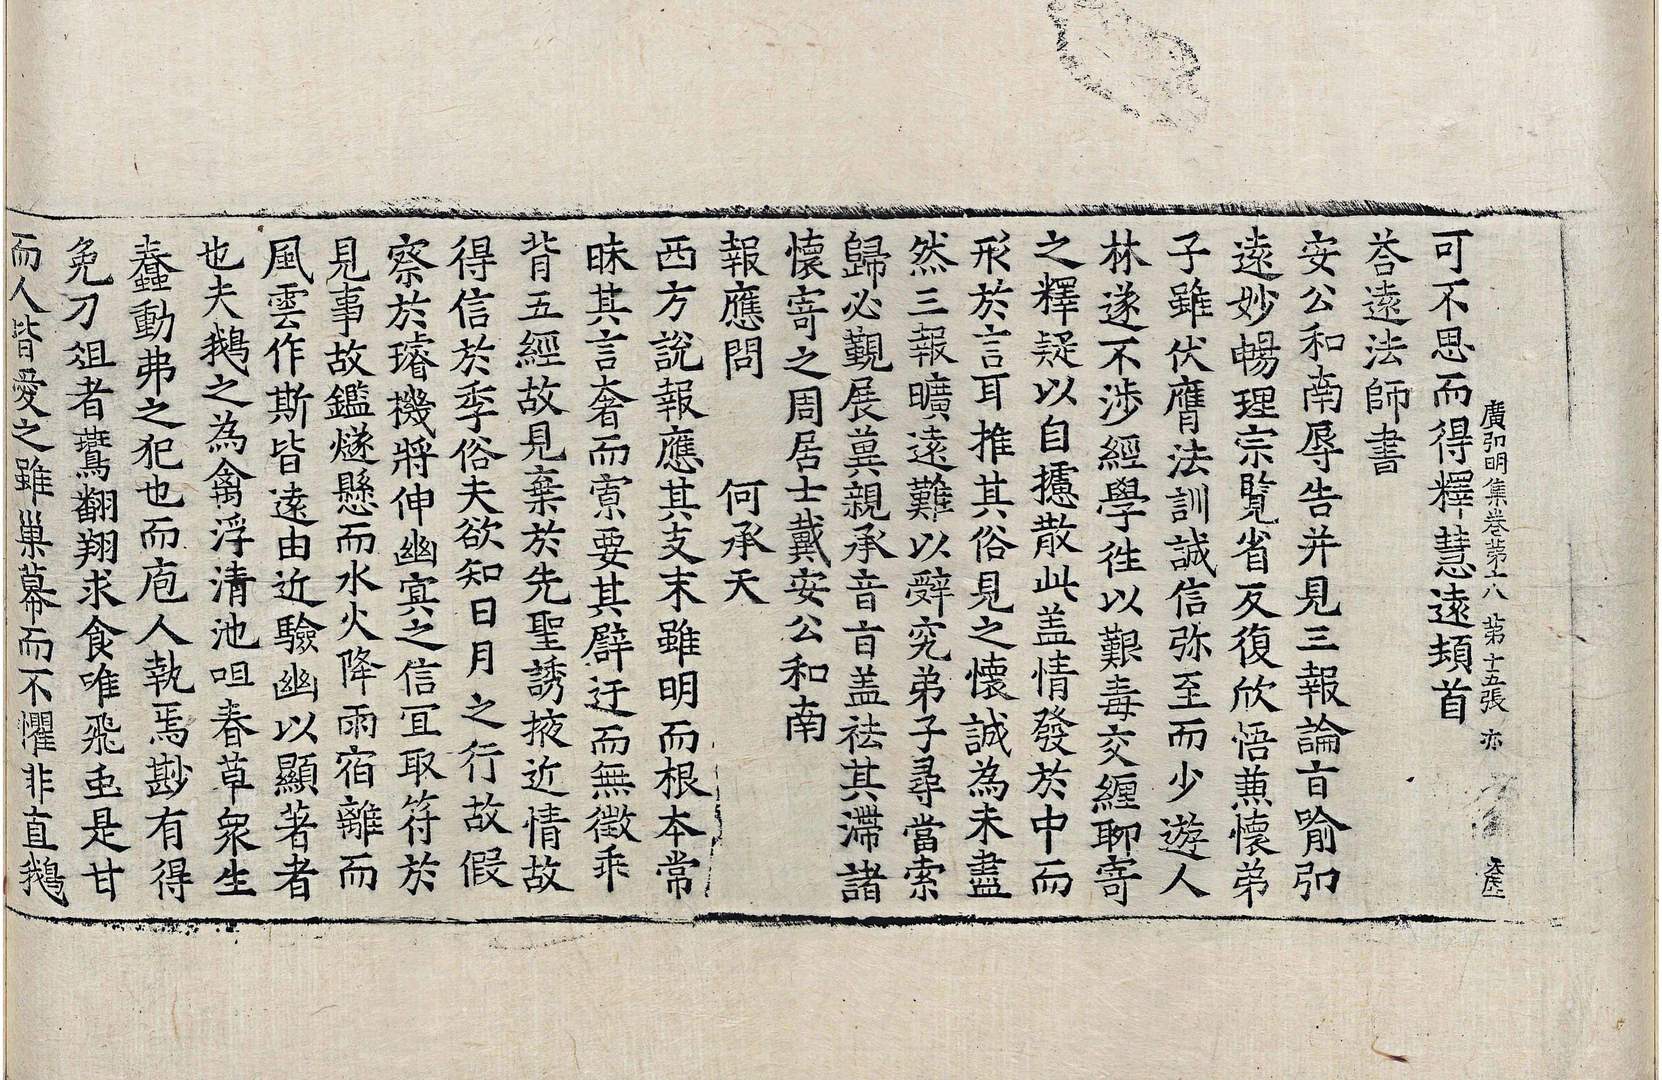 廣弘明集卷第十八 第十五張 亦
可不思而得釋慧遠頓首
荅遠法師書
安公和南辱告并見三報論旨喻弘
遠妙暢理宗覽省反復欣悟兼懷弟
子雖伏膺法訓誠信弥至而少遊人
林遂不涉經學徃以艱毒交纏聊寄
之釋疑以自攄散此盖情發於中而
形於言耳推其俗見之懷誠為未盡
然三報曠遠難以辭究弟子尋當索
歸必觀展冀親承音旨盖祛其滯諸
懷寄之周居士戴安公和南
報應問 何承天
西方說報應其支末雖明而根本常
昧其言奢而寡要其譬迂而無徵乖
背五經故見棄於先聖誘掖近情故
得信於季俗夫欲知日月之行故假
察於璿機將伸幽冥之信冝取符於
見事故鑑燧懸而水火降雨宿離而
風雲作斯皆遠由近驗幽以顯著者
也夫鵝之為禽浮清池咀春草衆生
蠢動弗之犯也而庖人執焉尠有得
免刀俎者鷰翻翔求食唯飛虫是甘
而人皆愛之雖巢幕而不懼非直鵝